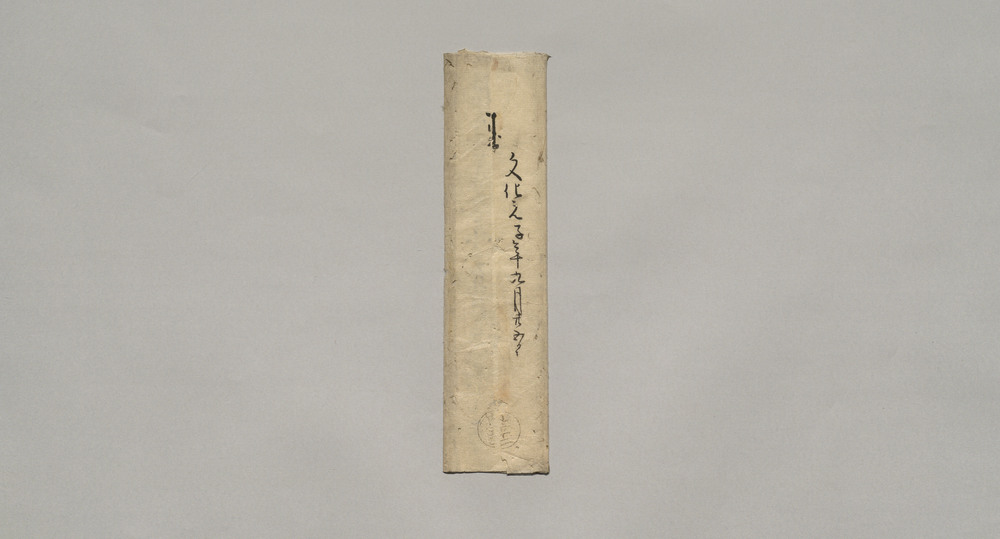 文化元子年九月廿五日